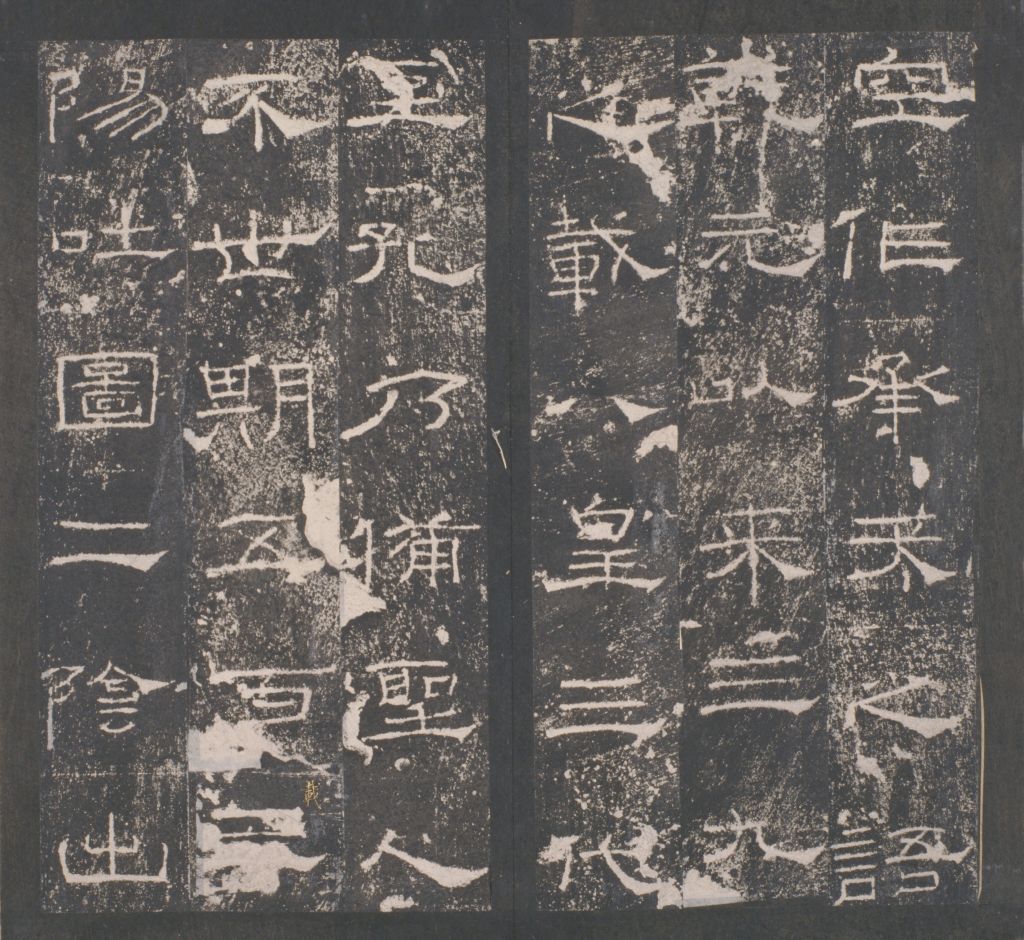 空作承天之語
乾元以來三九
之載八皇三代
至孔乃備聖人
不世期五百載三
陽吐圖二陰出